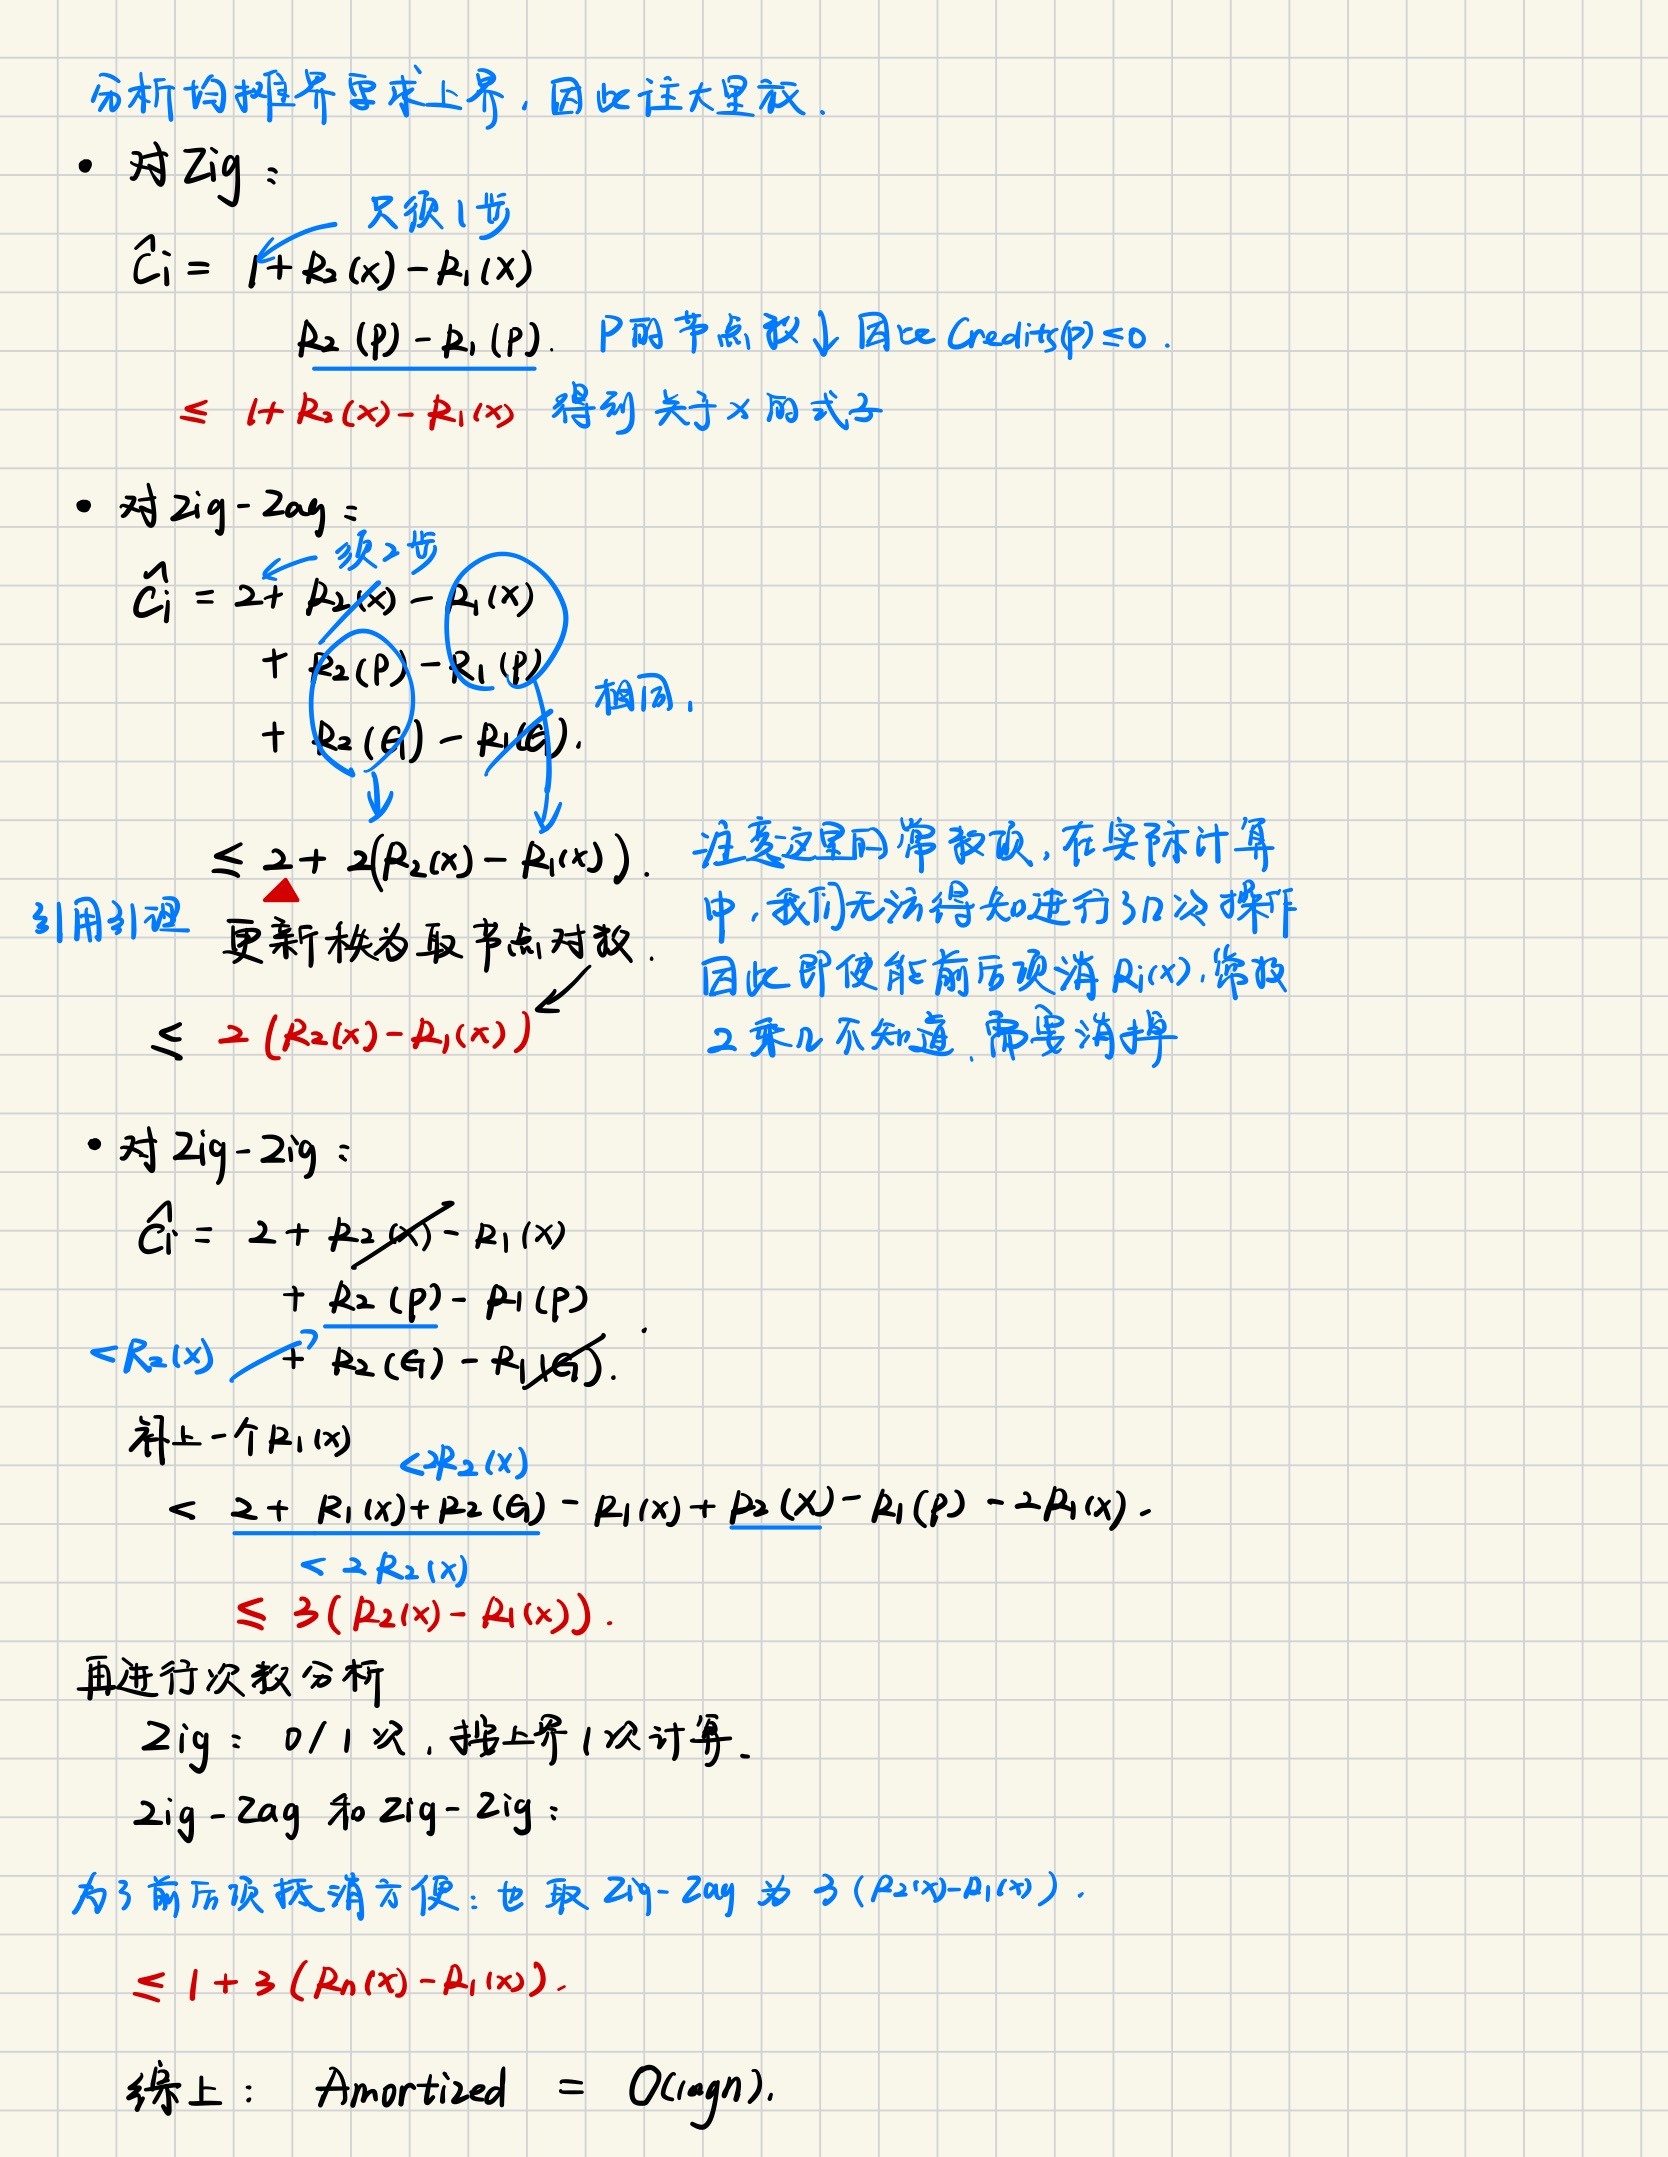 分析均摊界要求上界，因此往大里放.
• 对Zig：
只须1步
Ĉi = 1 + R₂(x) - R₁(x)
R₂(P) - R₁(P). P的节点数↓因此Credits(p)≤0.
≤ 1 + R₂(x) - R₁(x) 得到关于x的式子
• 对Zig-Zag：
须2步
Ĉi = 2 + R₂(x) - R₁(x)
+ R₂(P) - R₁(P)
+ R₂(G) - R₁(G).
相同，
≤ 2 + 2(R₂(x) - R₁(x)).
引用引理
更新秩为取节点对数.
≤ 2(R₂(x) - R₁(x))
注意这里的常数项，在实际计算
中，我们无法得知进行了几次操作
因此即使能前后项消Ri(x)，常数
2乘几不知道，需要消掉
• 对Zig-Zig：
Ĉi = 2 + R₂(x) - R₁(x)
+ R₂(P) - R₁(P)
<R₂(x) + R₂(G) - R₁(G).
补上一个R₁(x)
<2R₂(x)
< 2 + R₁(x) + R₂(G) - R₁(x) + R₂(x) - R₁(P) - 2R₁(x).
< 2R₂(x)
≤ 3(R₂(x) - R₁(x)).
再进行次数分析
Zig：0/1次，按上界1次计算.
Zig-Zag和Zig-Zig：
为了前后项抵消方便：也取Zig-Zag为3(R₂(x)-R₁(x)).
≤ 1 + 3(Rn(x) - R₁(x)).
综上：Amortized = O(logn).